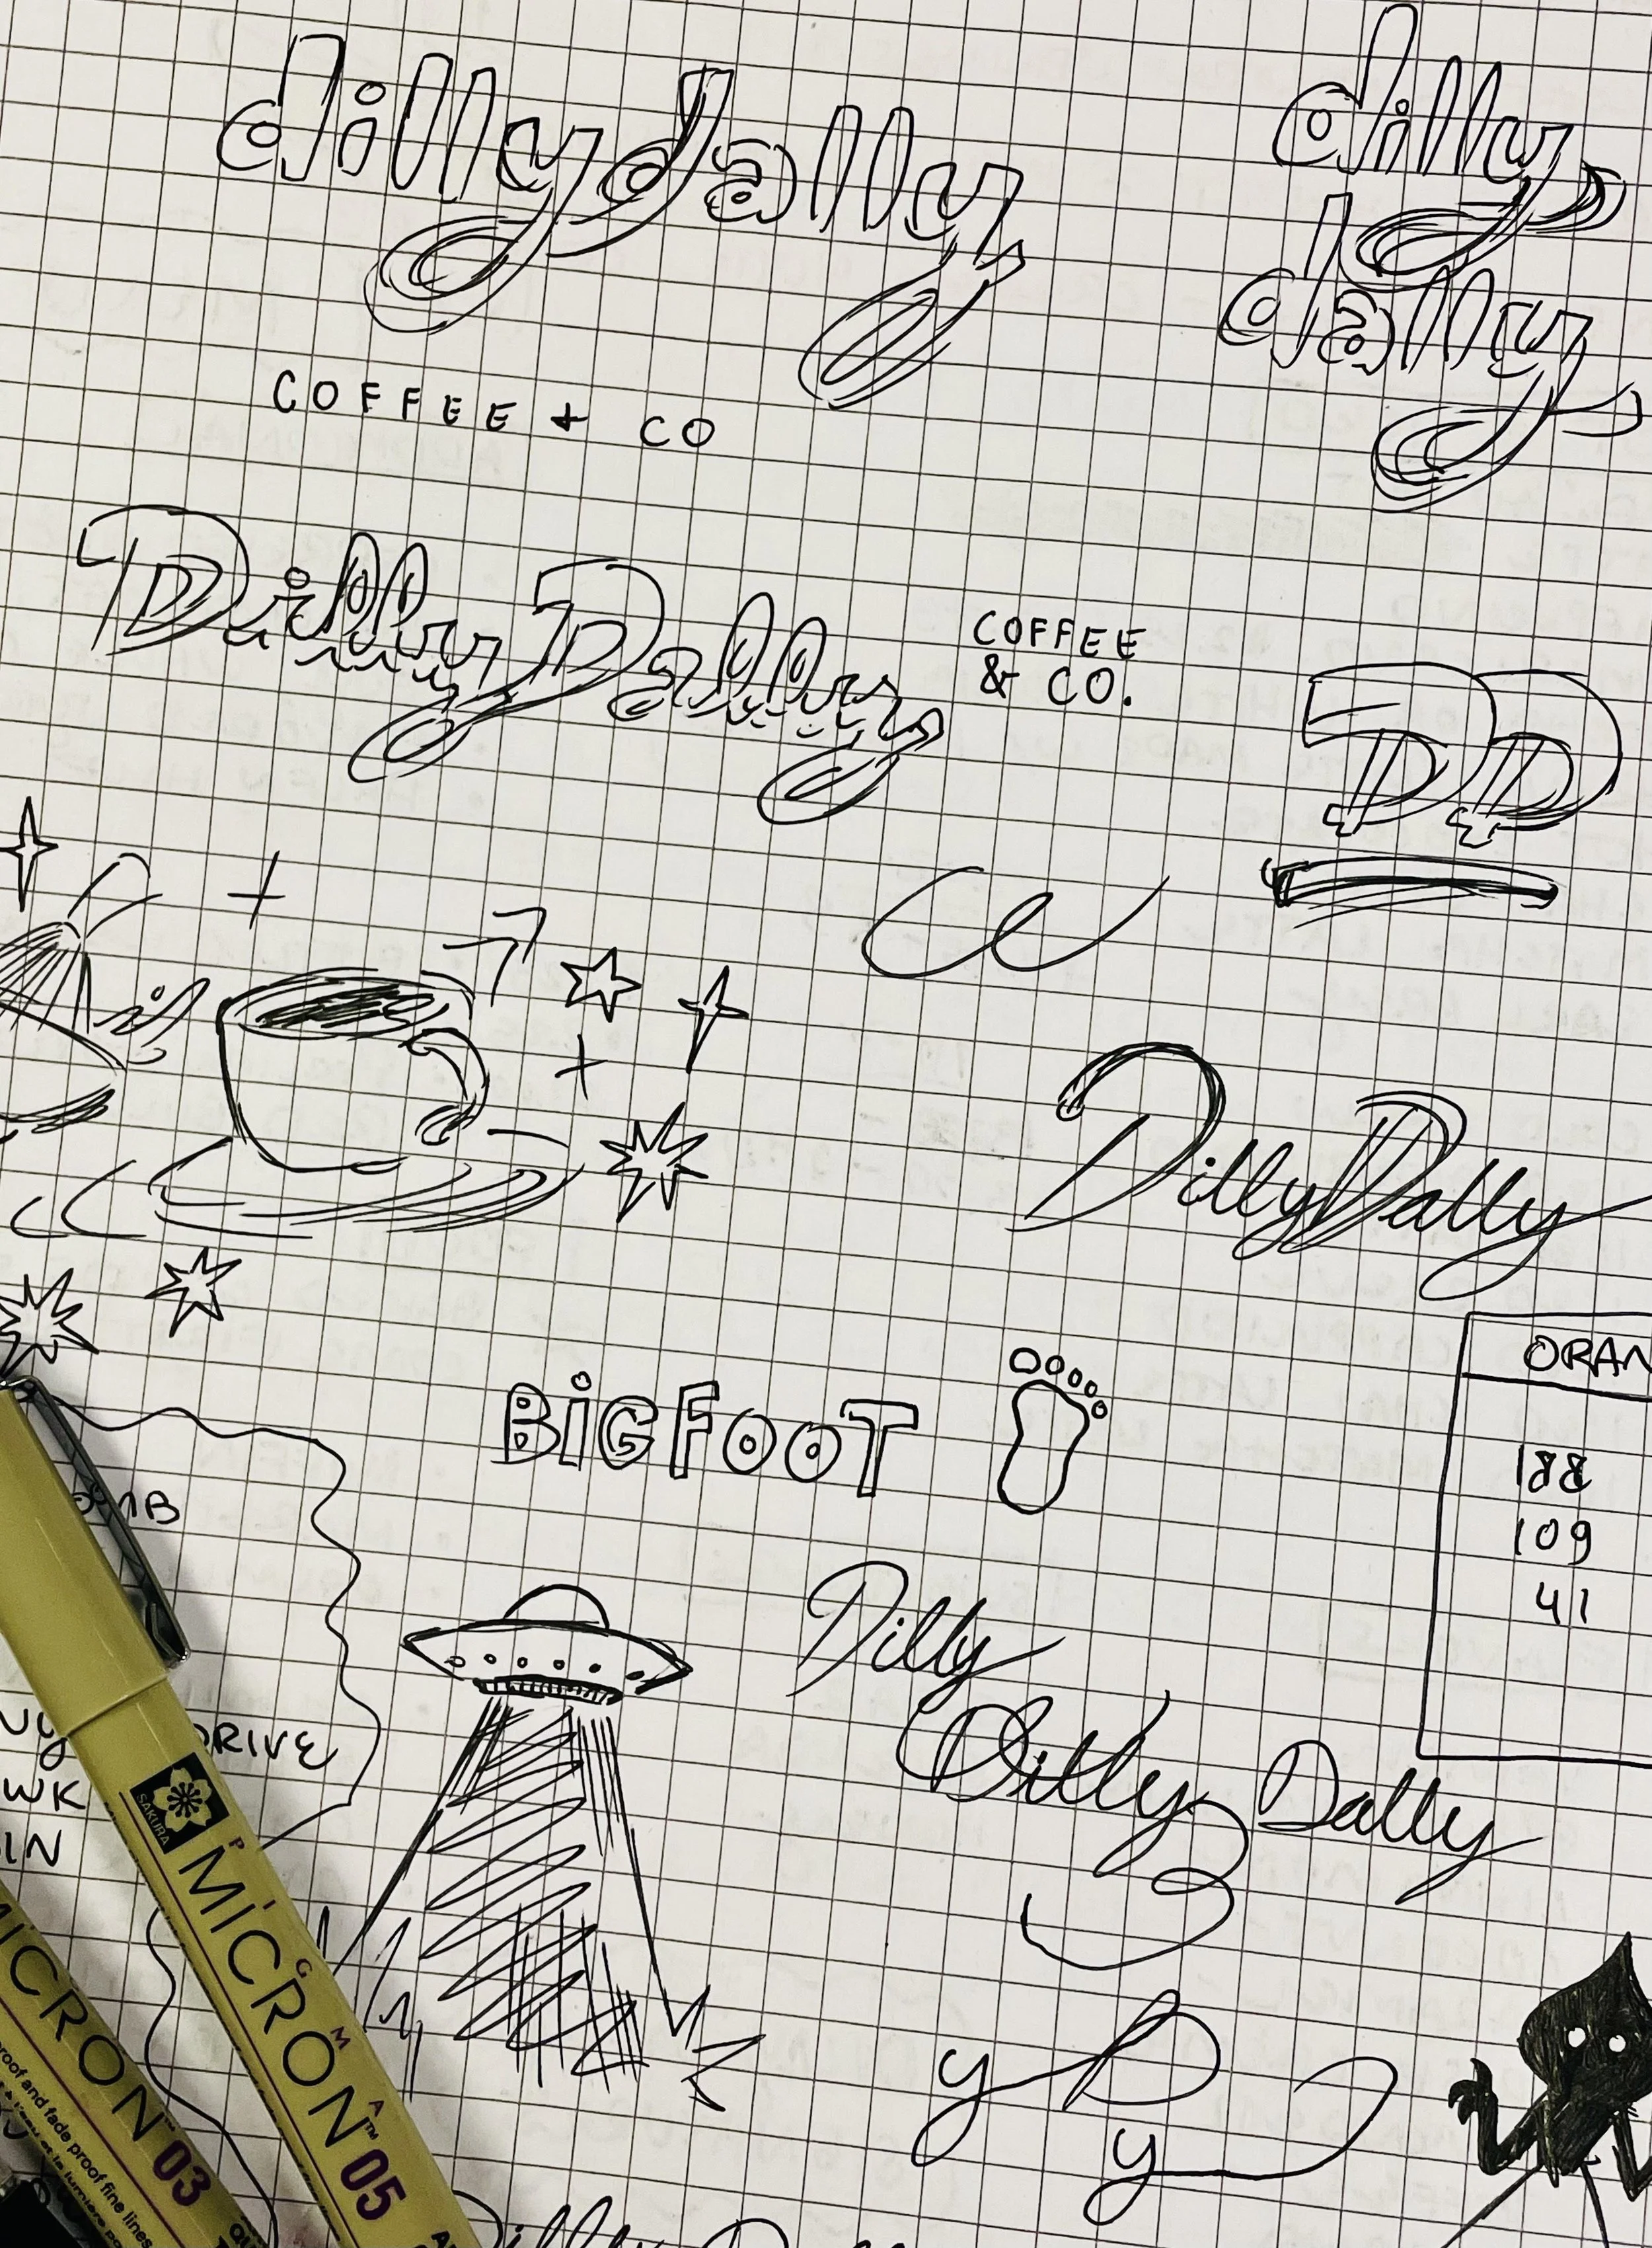 dillydally
dilly
dally
COFFEE + CO
Dilly Dally
COFFEE
& CO.
DD
DillyDally
BiGFOOT
188
109
41
Dilly
Dilly Dally
DRIVE
WK
IN
SAKURA
PIGMA
MICRON™ 05
MICRON™ 03
proof and fade proof fine lines
y D
y
Dilly D